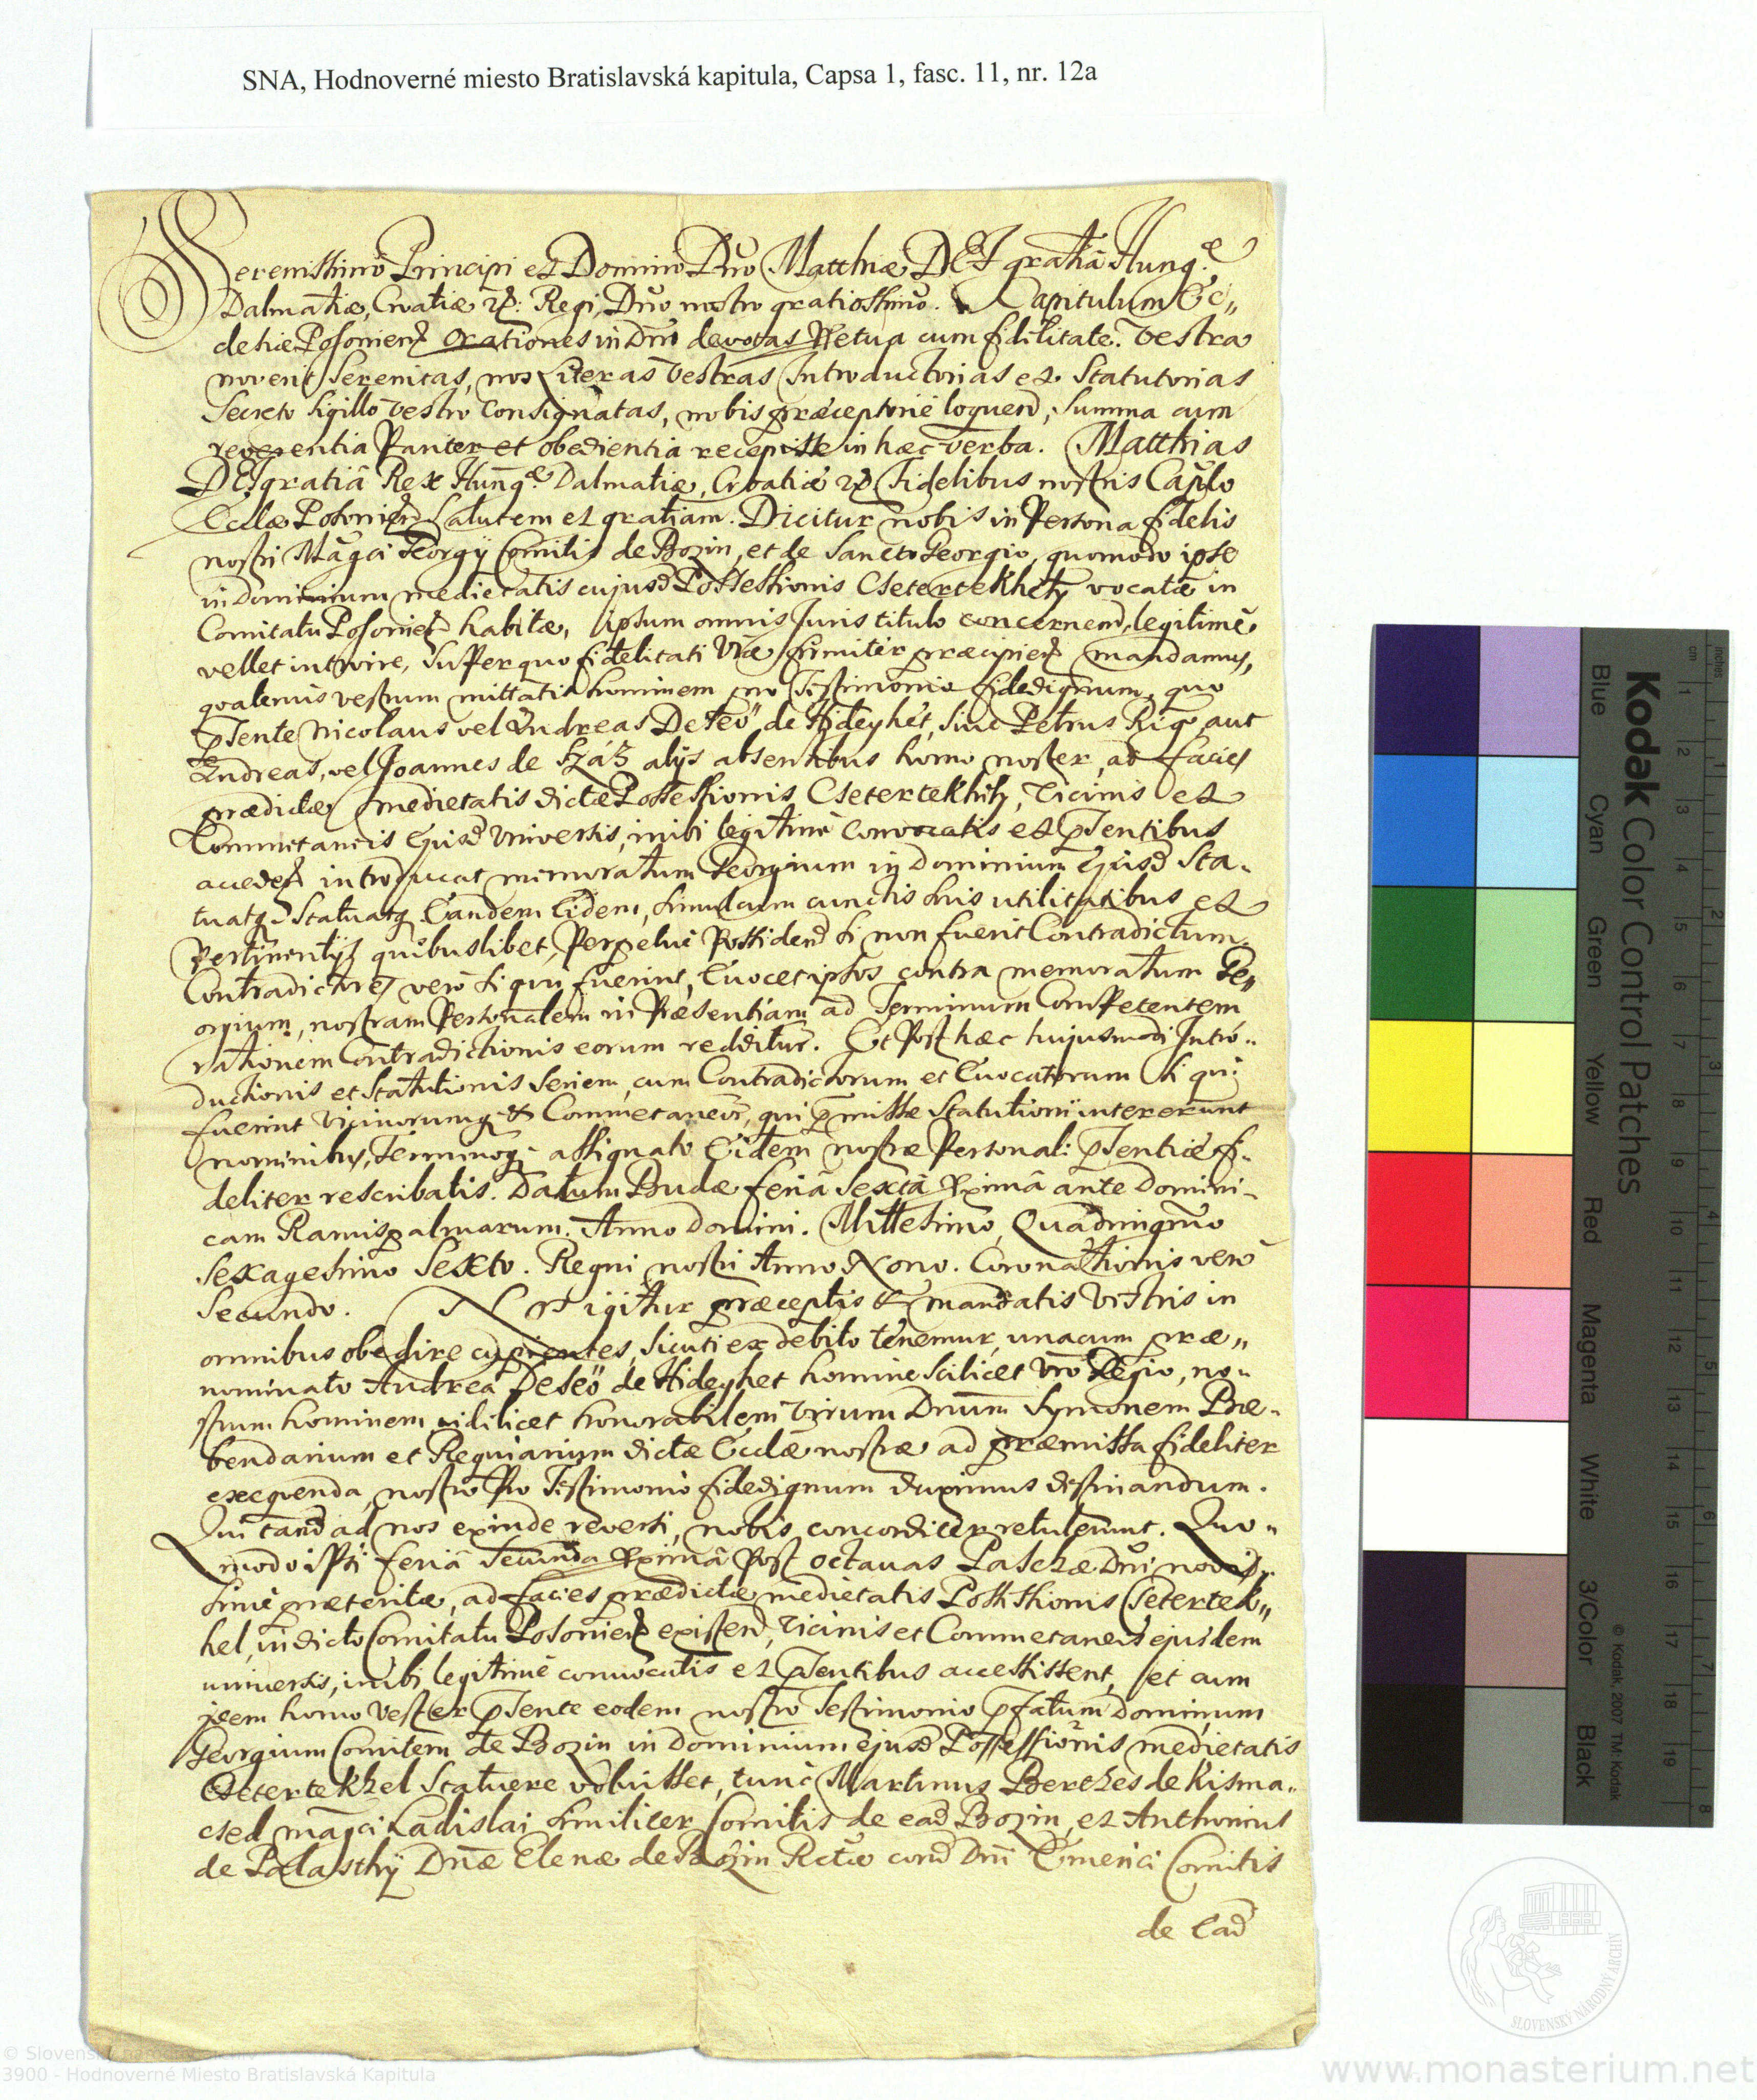 SNA, Hodnoverné miesto Bratislavská kapitula, Capsa 1, fasc. 11, nr. 12a
Serenissimo Principi et Domino Dno Matthiæ DEI gratiâ Hungæ
Dalmatiæ, Croatiæ Regi, Dno nostro gratiossimo. Capitulum Ec„
clesiæ Posonien orationes in Dno devotas Perpetua cum fidelitate. Vestra
noverit Serenitas, nos Literas Vestras Introductorias et Statutorias
Secreto Sigillo Vestro Consignatas, nobis præceptorie loquend, Summa cum
reverentia Pariter et obedientia recepisse in hæc verba. Matthias
DEI gratiâ Rex Hungæ Dalmatiæ, Croatiæ Fidelibus nostris Caplo
Ecclæ Posonien Salutem et gratiam. Dicitur nobis in Persona fidelis
nostri Magci Georgÿ Comitis de Bozin, et de Sancto Georgio, quomodo ipse
in Dominium medietatis cujusd Possessionis Csetertekhely vocatæ in
Comitatu Posonien habitæ, ipsum omnis Juris titulo concernend, legitime
vellet introire, Super quo fidelitati Vræ firmiter præcipien mandamus,
qvatenus vestrum mittatis hominem pro Testimonio fidedignum, quo
pſente Nicolaus vel Andreas Deseö de Hideghét, sive Petrus Rigo, aut
Andreas, vel Joannes de Száz alÿs absentibus homo noster, ad facies
prædictæ medietatis dictæ Possessionis Csetertekhely, Vicinis et
Commetaneis Ejusd Universis, inibi legitimè Convocatis et pſentibus
acceden introducat memoratum Georgium in Dominium Ejusd Sta-
tuatq Statuatq Eandem Eidem, simulcum cunctis suis utilitatibus et
Pertinentÿs quibuslibet, Perpetue Possidend si non fuerit Contradictum.
Contradictores vero si qui fuerint, Evocet ipsos contra memoratum Ge„
orgium, nostram Personalem in Præsentiam ad Terminum Competentem
rationem Contradictionis eorum redditur. Et Post hæc hujusmodi Intro„
ductionis et Statutionis Seriem, cum Contradictorum et Evocatorum si qui
fuerint Vicinorumq & Commetaneor, qui pmissæ Statutioni intererunt
nominibus, Terminoq assignato Eidem nostræ Personal: pſentiæ fi-
deliter rescribatis. Datum Budæ feriâ Sextâ Pximâ ante Domini-
cam Ramispalmarum. Anno Domini. Millesimo, Quadringmo
Sexagesimo Sexto. Regni nostri Anno Nono. Coronationis vero
Secundo. Nos igitur præceptis & mandatis Vestris in
omnibus obedire cupientes, sicuti ex debito tenemur, unacum præ„
nominato Andrea Deseö de Hideghet homine scilicet Vro Regio, no„
strum hominem videlicet honorabilem Virum Dnum Symonem Præ-
bendarium et Reguiarium dictæ Ecclæ nostræ ad præmissa fideliter
exeqvenda, nostro Pro Testimonio fidedignum duximus destinandum.
Qui tand ad nos exinde reversi, nobis concorditer retulerunt. Quo„
modo ipsi feriâ Secunda Pximâ Post octavas Paschæ Dni novis„
sime præteritæ, ad facies prædictæ medietatis Possessionis Csetertek„
hel, in dicto Comitatu Posonien existen, Vicinis et Commetaneis ejusdem
universis, inibi legitimè convocatis et pſentibus accessissent, et cum
idem homo Vester pſente eodem nostro Testimonio pfatum Dominum
Georgium Comitem de Bozin in Dominium ejusd Possessionis medietatis
Csetertekhel Statuere voluisset, tunc Martinus Berches de Kisma„
csed magci Ladislai similiter Comitis de ead Bozin, et Anthonius
de Palasthÿ Dnæ Elenæ de Bozin Rctæ cond Dni Emerici Comitis
de Ead
Kodak Color Control Patches
Blue Cyan Green Yellow Red Magenta White 3/Color Black
© Kodak, 2007 TM: Kodak
inches 1 2 3 4 5 6 7 8
cm 1 2 3 4 5 6 7 8 9 10 11 12 13 14 15 16 17 18 19
SLOVENSKÝ NÁRODNÝ ARCHÍV
© Slovenský národný archív
3900 - Hodnoverné Miesto Bratislavská Kapitula
www.monasterium.net